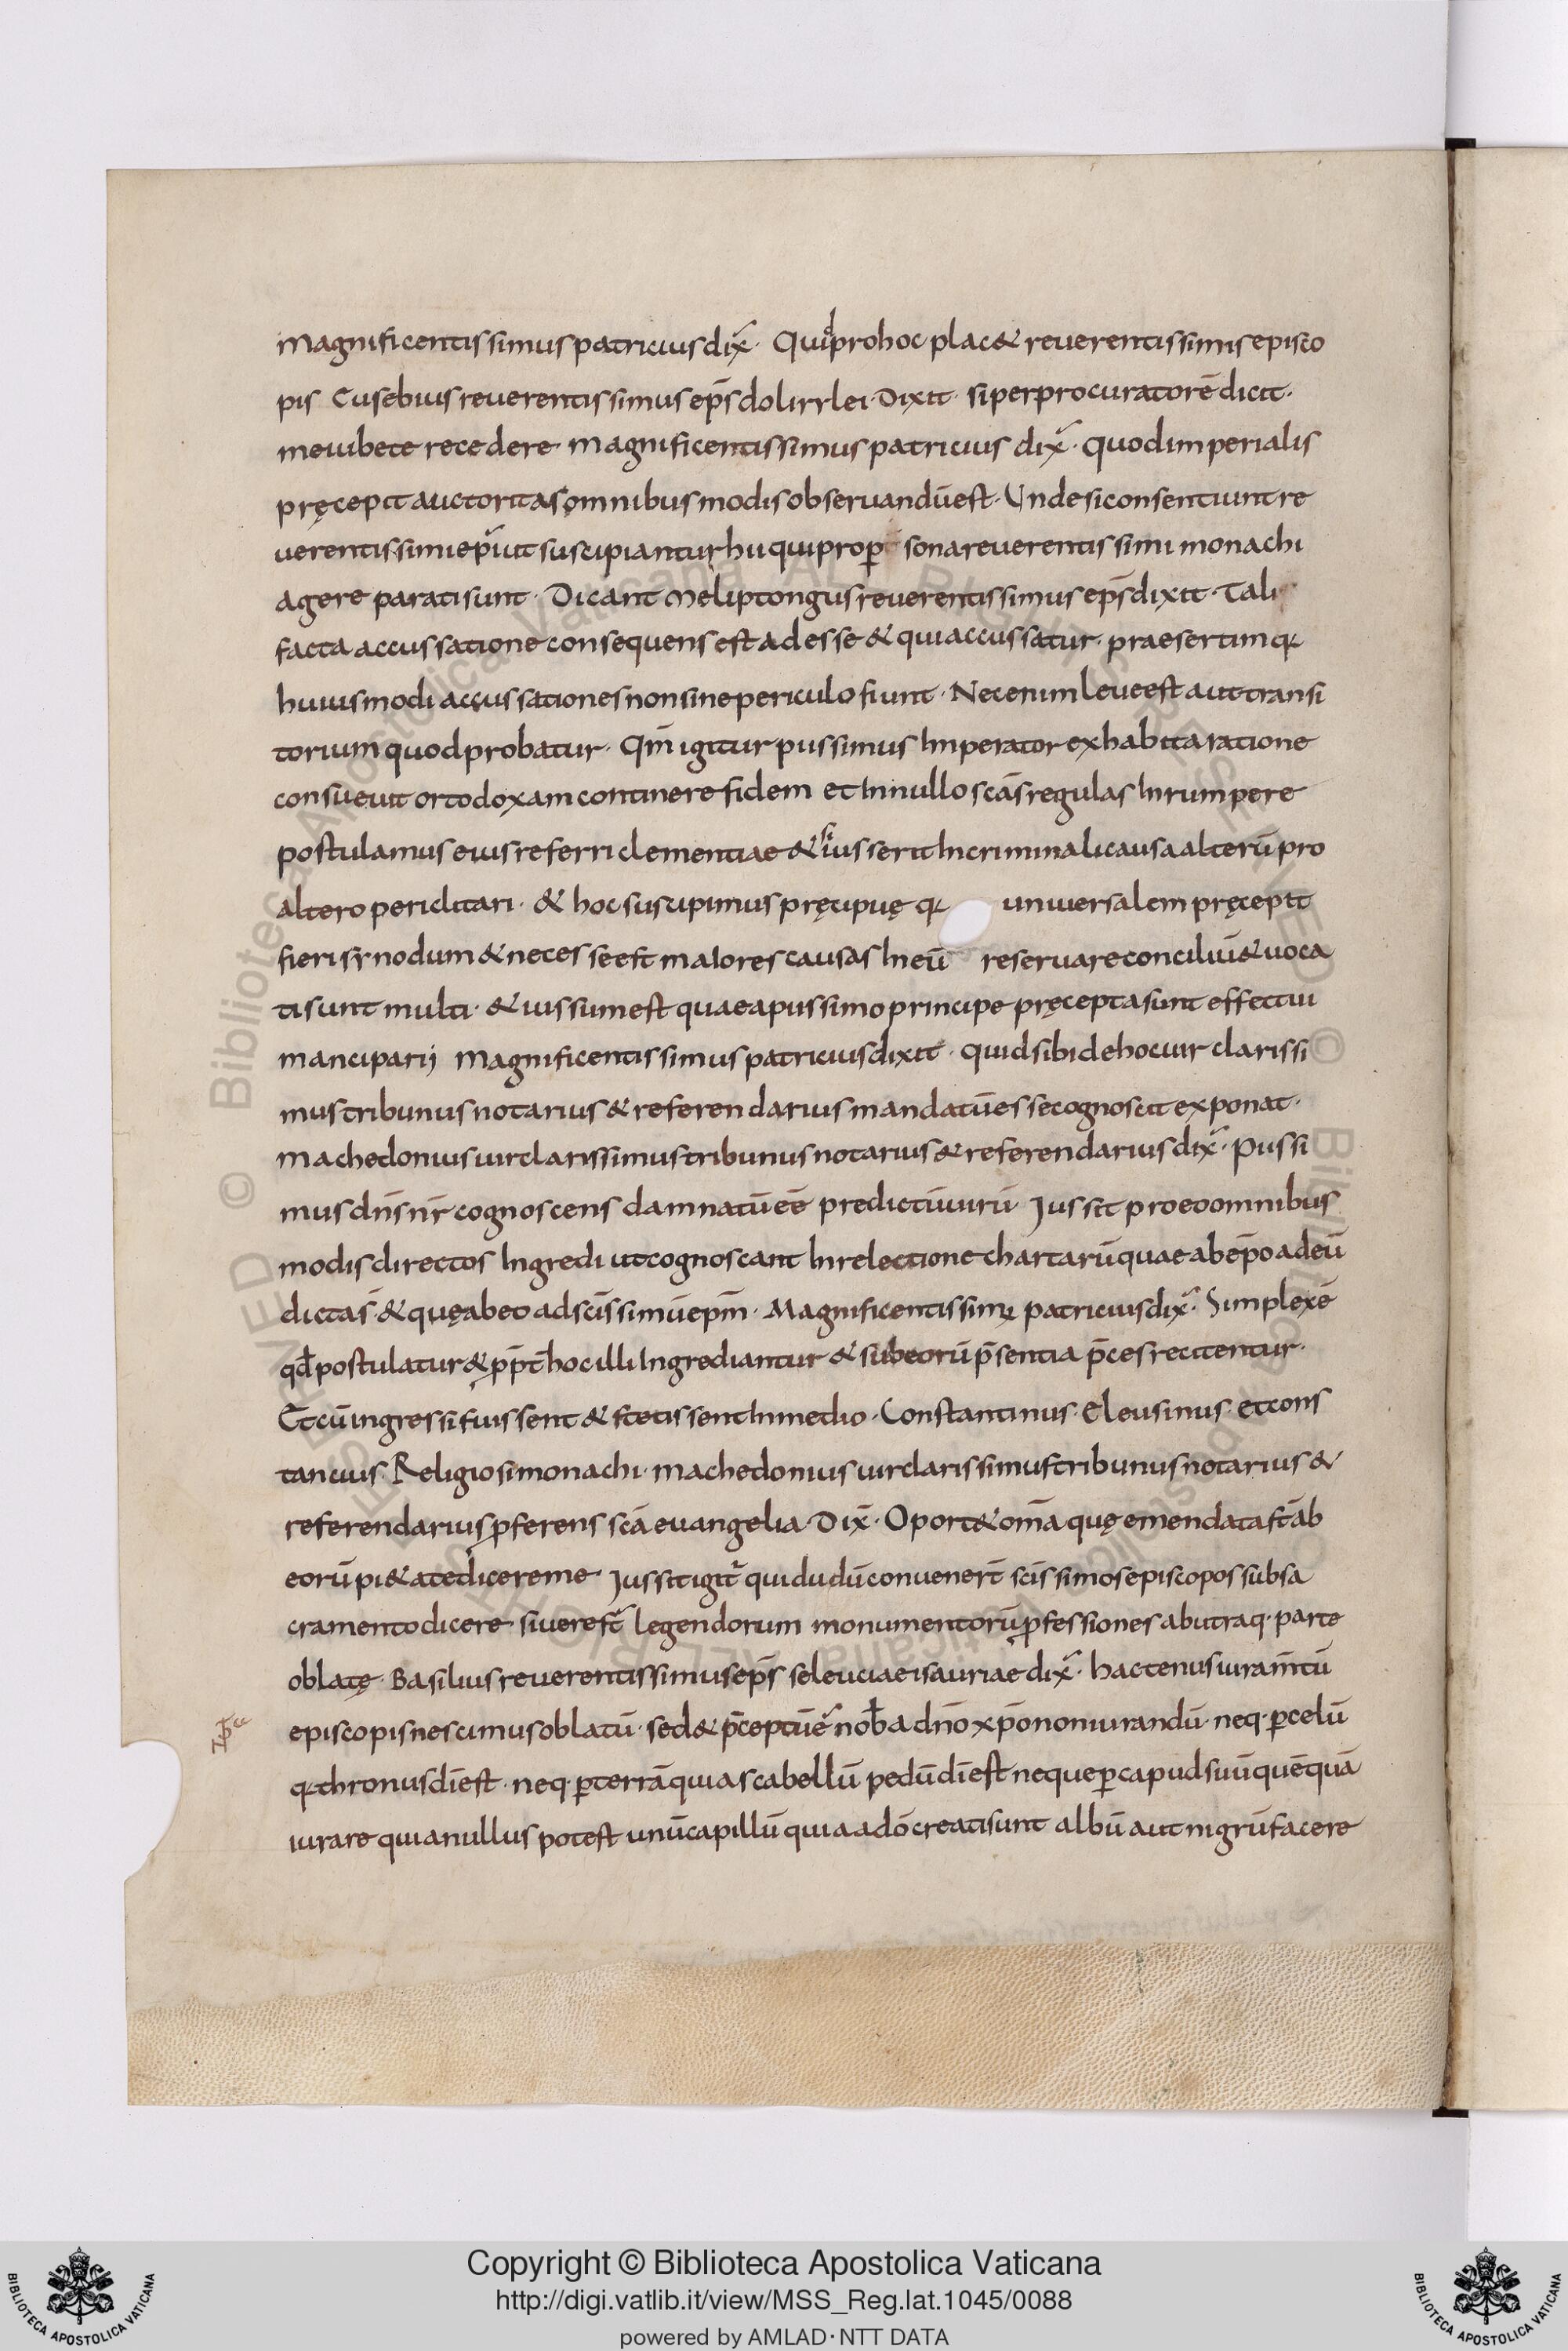 magnificentissimus patricius dix̄. Quid pro hoc plac& reuerentissimis episco
pis Eusebius reuerentissimus ep̄s dolirrlei. Dixit. si per procuratorē dicit.
me iubete recedere. magnificentissimus patricius dix̄. quod imperialis
pręcepit auctoritas omnibus modis obseruandū est. Unde si consentiunt re
uerentissimi ep̄i ut suscipiantur hii qui pro p sona reuerentissimi monachi
agere parati sunt. Dicant meliptongus reuerentissimus ep̄s dixit. Tali
facta accussatione consequens est adesse & qui accussatur. praesertim q
huiusmodi accussationes non sine periculo fiunt. Nec enim leue est aut transi
torium quod probatur. Qm̄ igitur piissimus Imperator ex habita ratione
consueuit ortodoxam continere fidem et In nullo scās regulas Inrumpere
postulamus eius referri clementiae & si iusserit In criminali causa alterū pro
altero periclitari. & hoc suscipimus pręcipuę q uniuersalem pręcepit
fieri synodum & necesse est maiores causas In eū reseruare conciliū & uoca
ti sunt multi. & iussum est quae a piissimo principe pręcepta sunt effectui
mancipari; magnificentissimus patricius dixit. quid sibi de hoc uir clarissi
mus tribunus notarius & referendarius mandatū esse cognoscit exponat.
machedonius uir clarissimus tribunus notarius & referendarius dix̄. Piissi
mus dn̄s nr̄ cognoscens damnatū eē predictū uirū Jussit pro eo omnibus
modis directos Ingredi ut cognoscant In relectione chartarū quae ab ep̄o ad eū
dictas & quę ab eo ad scīssimū ep̄m. Magnificentissimꝰ patricius dix̄. Simplex ē
qđ postulatur & pp̄t hoc illi Ingrediantur & sub eorū p̄sentia p̄ces recitentur.
Et cū ingressi fuissent & stetissent In medio. Constantinus. Eleusinus. et cons
tancius. Religiosi monachi. machedonius uir clarissimus tribunus notarius &
referendarius p̱ferens scā euangelia. Dix̄. Oport& om̄a quę emendata st̄ ab
eorū pi&ate dicere me Jussit igit̄ qui dudū conuener̄t scīssimos episcopos sub sa
cramento dicere si uere st̄ legendorum monumentorū p̱fessiones ab utraq. parte
oblatę. Basilius reuerentissimus ep̄s seleuciae isauriae dix̄. hactenus iuram̄tū
episcopis nescimus oblatū. sed & p̄ceptū ē nob̄ a dn̄o xp̄o non iurandū. neq. p̱ celū
q thronus dī est. neq. p̱ terrā quia scabellū pedū dī est neque p̱ capud suū quēquā
iurare quia nullus potest unū capillū quia a dō creati sunt albū aut nigrū facere
Copyright © Biblioteca Apostolica Vaticana
http://digi.vatlib.it/view/MSS_Reg.lat.1045/0088
powered by AMLAD · NTT DATA
BIBLIOTECA APOSTOLICA VATICANA
BIBLIOTECA APOSTOLICA VATICANA